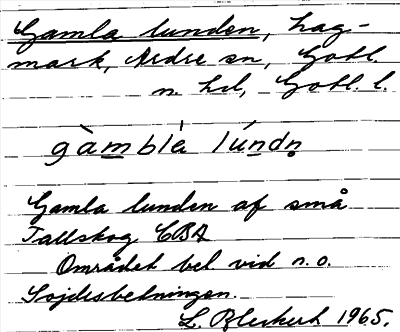 Gamla lunden, hag-
mark, Ardre sn, Gotl.
n. hd, Gotl. l.
gàmblà lúndn
Gamla lunden af små
Tallskog CBA
Området bel. vid n.o.
Sojdesbetningen.
L. Bleckert 1965.